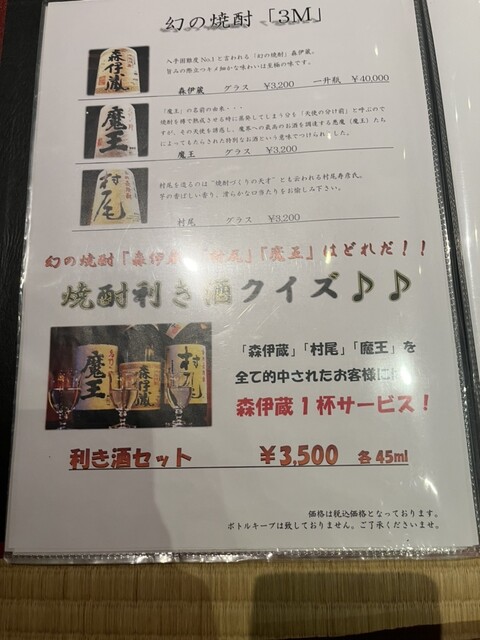 幻の焼酎「3M」
森伊蔵
入手困難度No.1と言われる「幻の焼酎」森伊蔵。
旨みの際立つキメ細かな味わいは至極の味です。
森伊蔵 グラス ¥3,200 一升瓶 ¥40,000
魔王
「魔王」の名前の由来・・・
焼酎を樽で熟成させる時に蒸発してしまう分を「天使の分け前」と呼ぶので
すが、その天使を誘惑し、魔界への最高のお酒を調達する悪魔（魔王）たち
によってもたらされた特別なお酒という意味でつけられました。
魔王 グラス ¥3,200
村尾
村尾を造るのは"焼酎づくりの天才"とも云われる村尾寿彦氏。
芋の香ばしい香り、滑らかな口当たりをお愉しみ下さい。
村尾 グラス ¥3,200
幻の焼酎「森伊蔵」「村尾」「魔王」はどれだ！！
焼酎利き酒クイズ♪♪
魔王 森伊蔵 村尾
「森伊蔵」「村尾」「魔王」を
全て的中されたお客様には
森伊蔵1杯サービス！
利き酒セット ¥3,500 各45ml
価格は税込価格となっております。
ボトルキープは致しておりません。ご了承くださいませ。